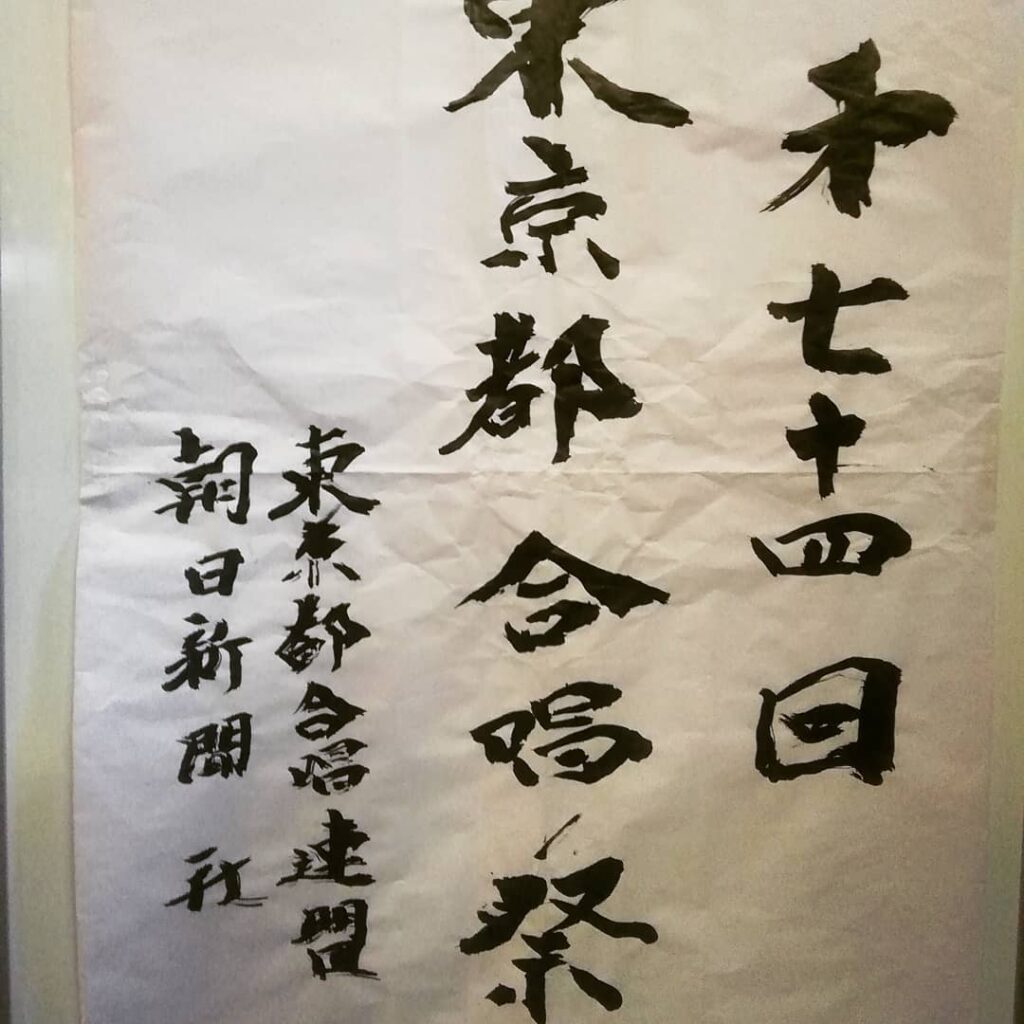 第七十四回
東京都合唱祭
東京都合唱連盟
朝日新聞社